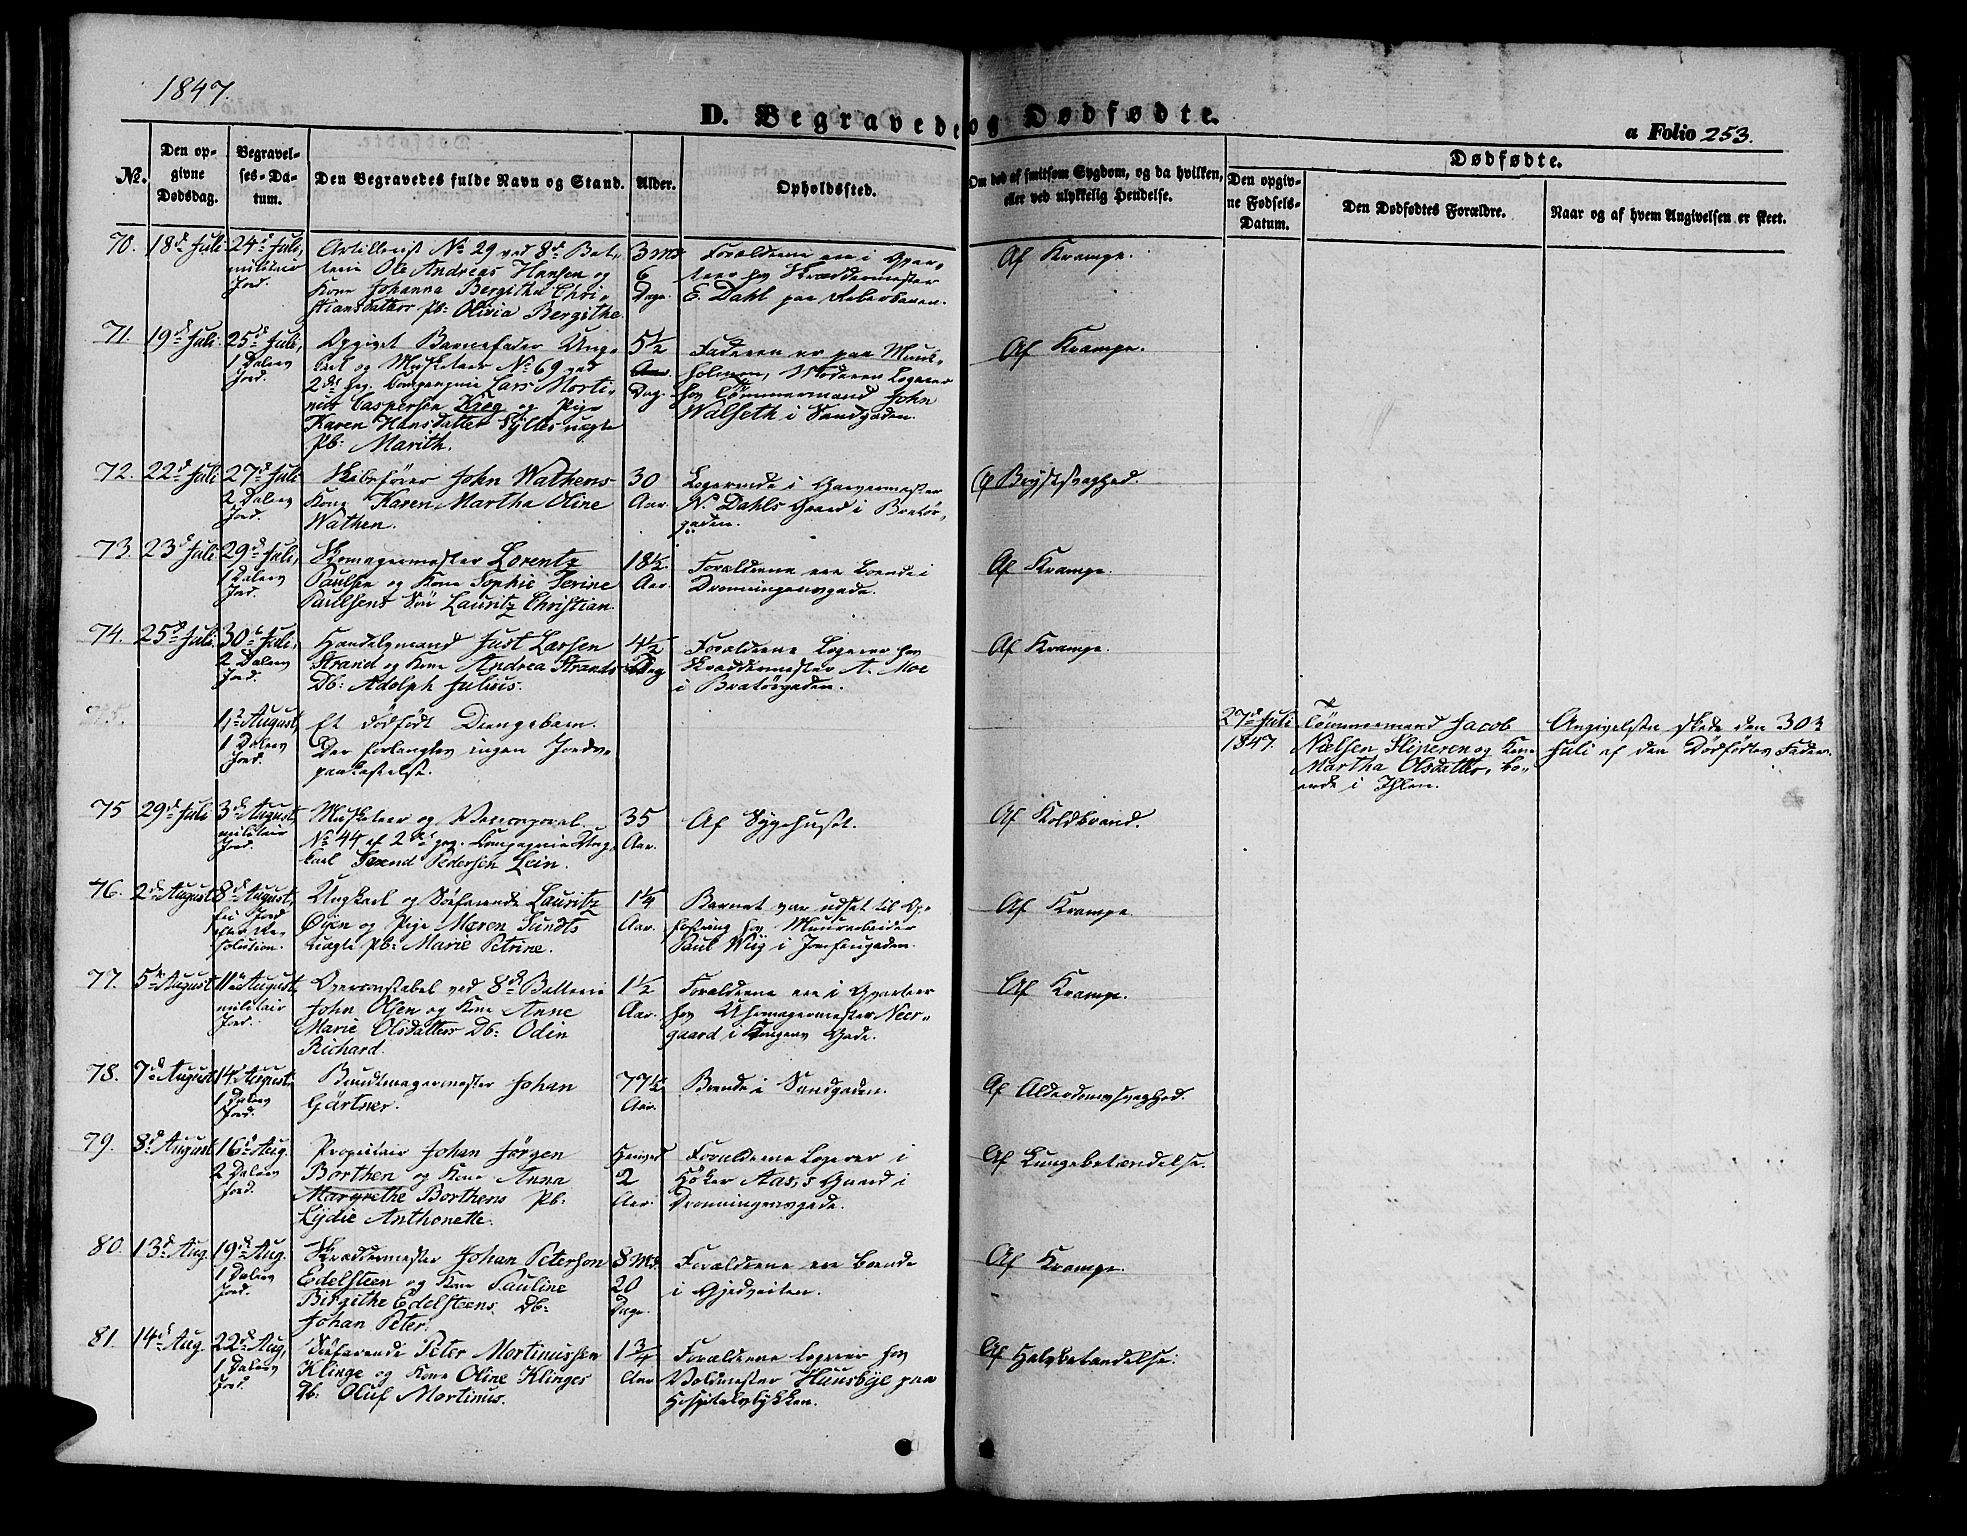 1847.
D. Begravede og Dødfødte.
a Folio 253.
No.
Den opgivne Dødsdag.
Begravelses-Datum.
Den Begravedes fulde Navn og Stand.
Alder.
Opholdssted.
Om død af smitsom Sygdom, og da hvilken, eller ved ulykkelig Hendelse.
Dødfødte.
Den opgivne Fødsels-Datum.
Den Dødfødtes Forældre.
Naar og af hvem Angivelsen er skeet.
70. 18de Juli 24de Juli, militair Jord.
Artillerist No 29 ved 8de Bat-
terie Ole Andreas Hansen og
Kone Johanna Bergitha Chri-
stiansdatter Pb: Olivia Bergithe.
3 Md 6 Dage.
Forældrene ere i Qvar-
teer hos Skræddermester
E. Dahl paa
Af Krampe.
71. 19de Juli 25de Juli, 1 Dalers Jord.
Opgivet Barnefader Ung-
karl og Musketeer No 69 ved
2det Compagnie Lars Morti-
nus Caspersen Krog og Pige
Karen Hansdatter Sylles uægte
Pb: Marith.
5½ Dag.
Faderen er paa Munk-
holmen, Moderen Logerer
hos Tømmermand John
Walseth i Sandgaden.
Af Krampe.
72. 22de Juli 27de Juli 2 Dalers Jord.
Skibsfører John Wathens
Kone Karen Martha Oline
Wathen.
30 Aar.
Logerende i Garvermester
N. Dahls Gaard i Bratør-
gaden.
Af Brystsvaghed.
73. 23de Juli 29de Juli, 1 Dalers Jord.
Skomagermester Lorentz
Paulsen og Kone Sophie Serine
Paulsens Søn Lauritz Christian.
18½ Aar.
Forældrene ere Boende i
Dronningensgade.
Af Krampe.
74. 25de Juli 30te Juli, 2 Dalers Jord.
Handelsmand Just Larsen
Strand og Kone Andrea Strands
Db: Adolph Julius.
4½ Dag
Forældrene Logerer hos
Skræddermester A. Moe
i Bratørgaden.
Af Krampe.
1ste August, 1 Dalers Jord.
Et dødfødt Drengebarn.
Der forlanges ingen Jords-
paakastelse.
27de Juli 1847.
Tømmermand Jacob
Nielsen Sliperen og Kone
Martha Olsdatter, bo-
ende i Ihlen.
Angivelsen skede den 30te
Juli af den Dødfødtes Fader.
75 29de Juli 3de August, militair Jord.
Musketeer og Vicecorporal
No 44 af 2det Compagnie Ung-
karl Svend Pedersen Lein.
35 Aar.
Af Sygehuset.
Af Koldbrand.
76. 2den August 8de August, fri Jord efter Re-
solution.
Ungkarl og Søefarende Lauritz
Øyen og Pige Maren Sundts
uægte Pb: Marie Petrine.
1¼ Aar.
Barnet var udsat til Op-
fostring hos Muurarbeider
Paul Wiig i Jomfrugaden.
Af Krampe.
77. 5te August 11te August, militair Jord.
Overconstabel ved 8de Batterie
John Olsen og Kone Anne
Marie Olsdatters Db: Odin
Richard.
1½ Aar.
Forældrene ere i Qvarteer
hos Uhrmagermester Neer-
gaard i Kongens Gade.
Af Krampe.
78. 7de August 14de August 1 Dalers Jord.
Bundtmagermester Johan
Gärtner.
77½ Aar.
Boende i Sandgaden.
Af Alderdomssvaghed.
79. 8de August 16de Aug. 2 Dalers Jord.
Proprietair Johan Jørgen
Borthen og Kone Anna
Margrethe Borthens Pb:
Lydie Anthonette.
2 Aar.
Forældrene Logerer i
Høker Aas's Gaard i
Dronningensgade.
Af Lungebetændelse.
80. 13de Aug. 19de Aug. 1 Dalers Jord.
Skræddermester Johan Peterson
Edelsteen og Kone Pauline
Birgithe Edelsteens Db:
Johan Peter.
8 Md. 20 Dage.
Forældrene ere Boende
i Gjedveiten.
Af Krampe.
81. 14de Aug. 22de Aug, 1 Dalers Jord.
Søefarende Peter Martinussen
Klinge og Kone Oline Klinges
Db: Oluf Martinus.
1¾ Aar
Forældrene Logerer hos
Voldmester Hansbye paa
Hospitalsløkken.
Af Halsbetændelse.